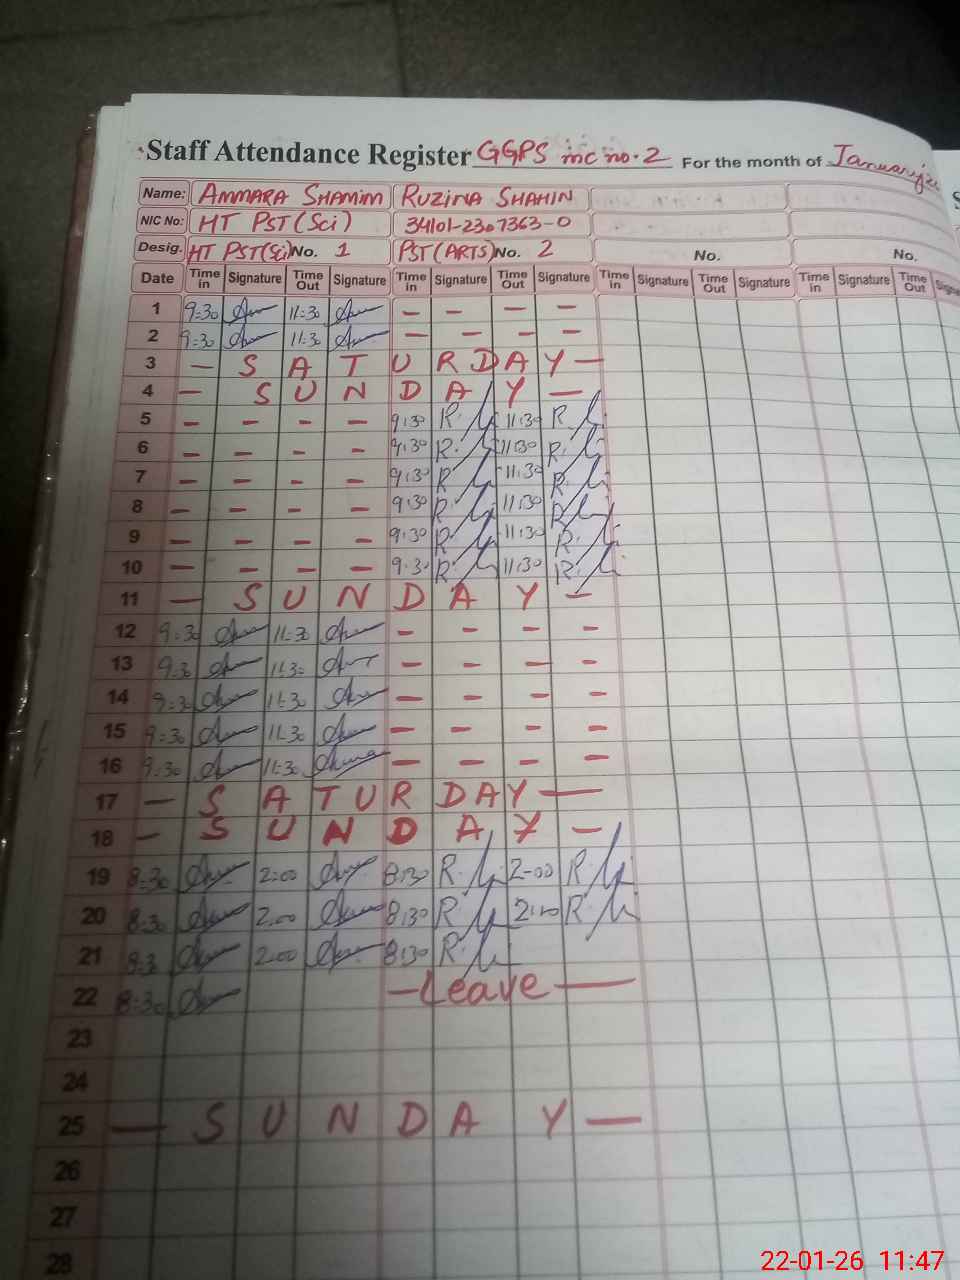 Staff Attendance Register GGPS mc no. 2 For the month of January
Name: AMMARA SHAMIM RUZINA SHAHIN
NIC No: HT PST (Sci) 34101-2307363-0
Desig. HT PST(Sci) No. 1 PST (ARTS) No. 2 No. No.
Date Time in Signature Time Out Signature Time in Signature Time Out Signature Time in Signature Time Out Signature Time in Signature Time Out
1 9:30 11:30 - - - -
2 9:30 11:30 - - - -
3 - SATURDAY -
4 - SUNDAY -
5 - - - - 9:30 11:30
6 - - - - 9:30 11:30
7 - - - - 9:30 11:30
8 - - - - 9:30 11:30
9 - - - - 9:30 11:30
10 - - - - 9:30 11:30
11 - SUNDAY -
12 9:30 11:30 - - - -
13 9:30 11:30 - - - -
14 9:30 11:30 - - - -
15 9:30 11:30 - - - -
16 9:30 11:30 - - - -
17 - SATURDAY -
18 - SUNDAY -
19 8:30 2:00 8:30 2-00
20 8:30 2:00 8:30 2:00
21 8:3 2:00 8:30
22 8:30 - Leave -
23
24
25 - SUNDAY -
26
27
28
22-01-26 11:47